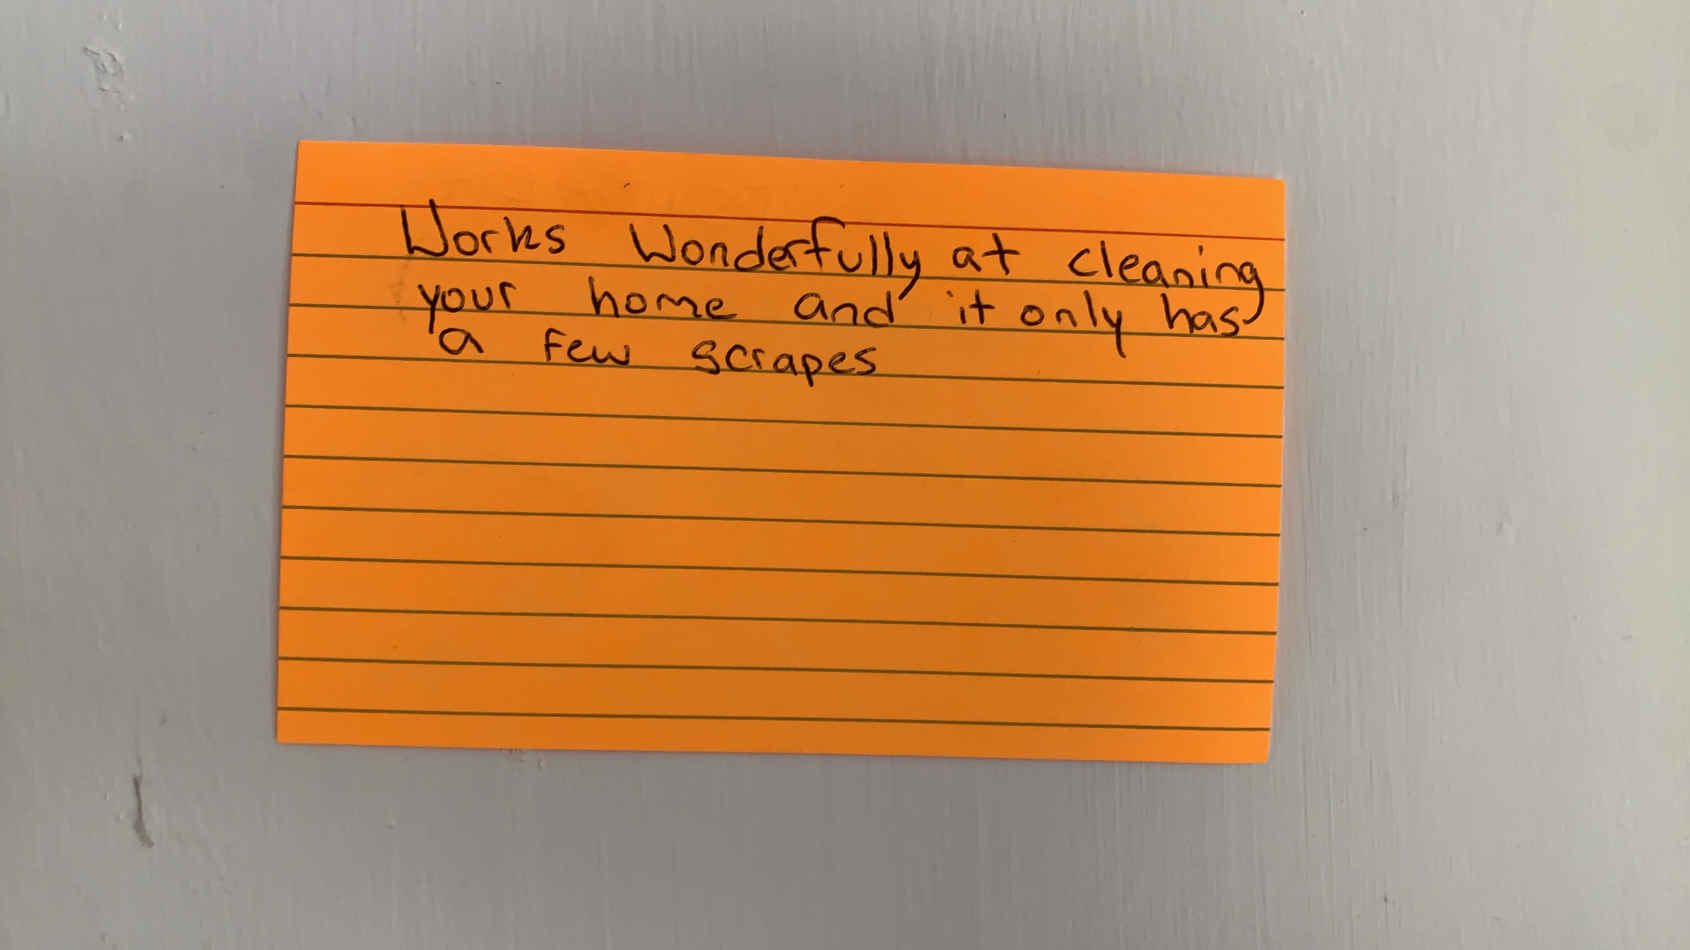 Works Wonderfully at cleaning
your home and it only has
a few scrapes